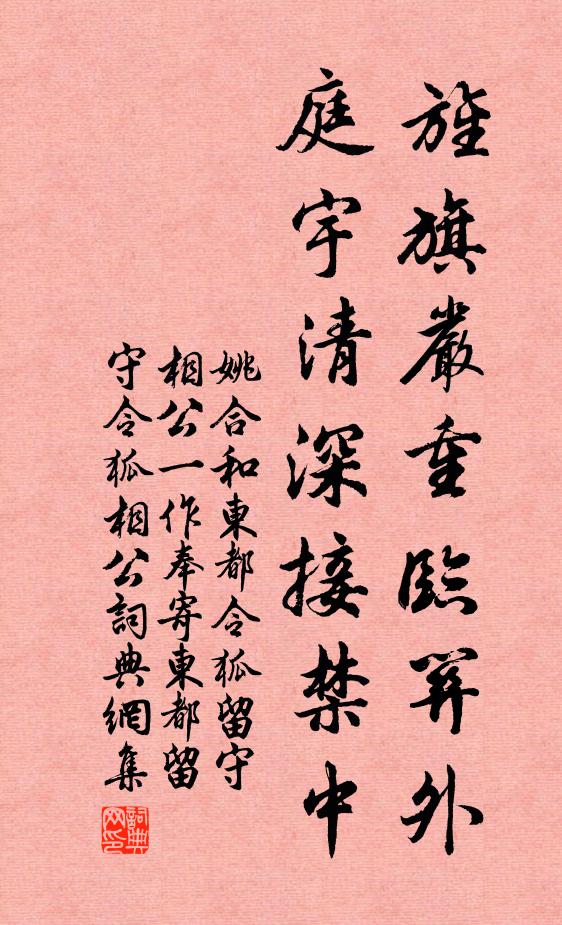 旌旗嚴重臨關外
庭宇清深接禁中
姚合和東都令狐留守
相公一作奉寄東都留
守令狐相公詞典網集
詞典
网印